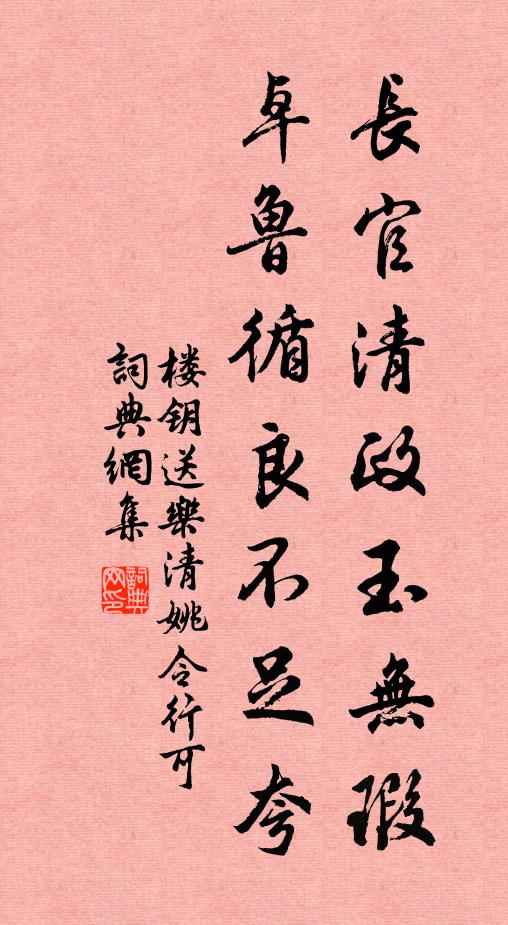 長官清政玉無瑕
卓魯循良不足夸
楼钥送樂清姚令行可
詞典網集
詞典网印